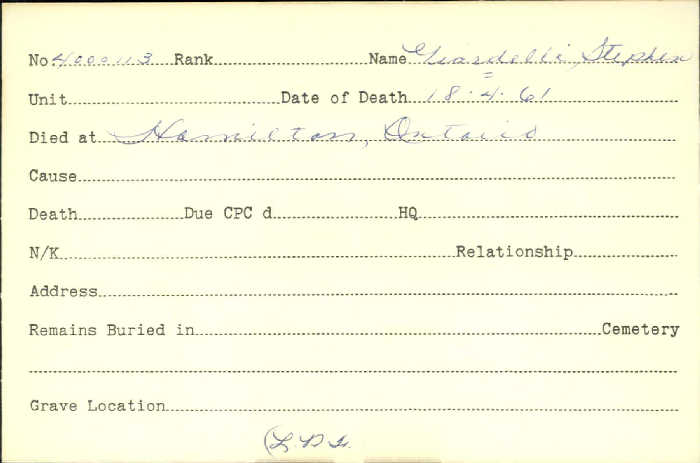 No 4000113 Rank Name Giardelli, Stephen
Unit Date of Death 18.4.61
Died at Hamilton, Ontario
Cause
Death Due CPC d HQ
N/K Relationship
Address
Remains Buried in Cemetery
Grave Location